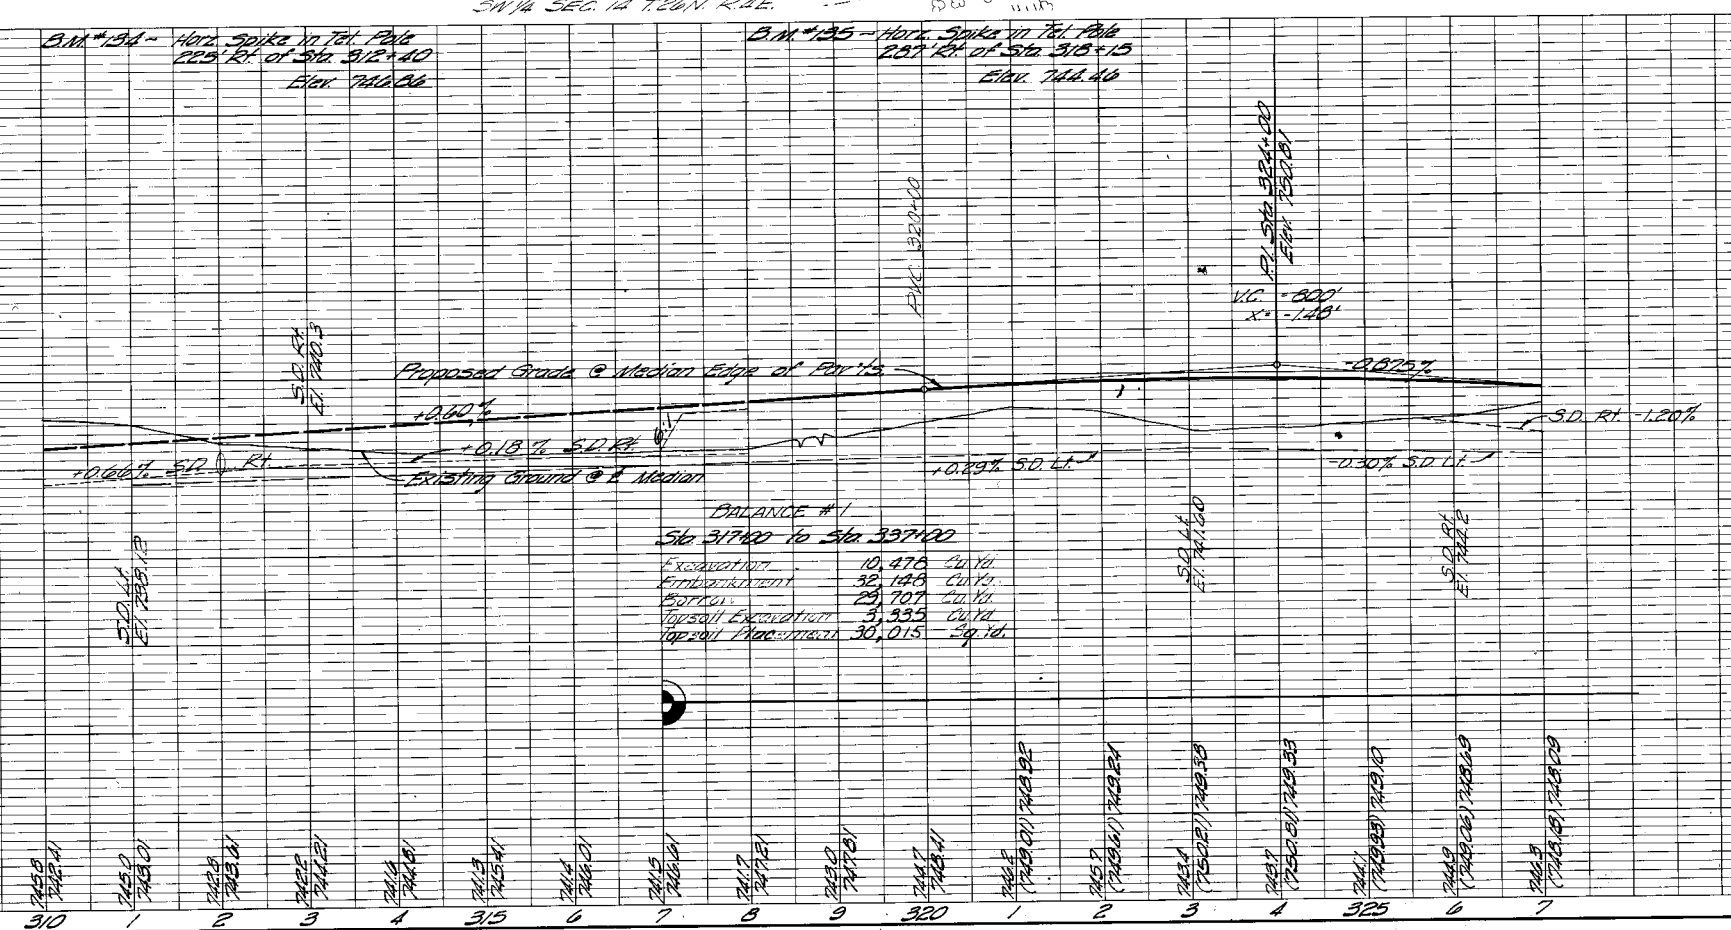 SW¼ SEC. 14 T.26N. R.4E.
B.M. #134 - Horz. Spike in Tel. Pole
225' Rt. of Sta. 312+40
Elev. 746.86
B.M. #135 - Horz. Spike in Tel. Pole
287' Rt. of Sta. 318+15
Elev. 744.46
P.I. Sta. 324+00
Elev. 750.81
PVC 320+00
V.C. = 800'
X = -1.48'
S.D. Rt.
El. 740.3
Proposed Grade @ Median Edge of Pav'ts.
-0.875%
+0.60%
S.D. Rt. -1.20%
+0.18% S.D. Rt.
6:1
+0.66% S.D. Rt.
+0.29% S.D. Lt.
-0.30% S.D. Lt.
Existing Ground @ ℄ Median
BALANCE #1
Sta. 317+00 to Sta. 337+00
Excavation 10,478 Cu. Yd.
Embankment 32,148 Cu. Yd.
Borrow 29,707 Cu. Yd.
Topsoil Excavation 3,335 Cu. Yd.
Topsoil Placement 30,015 Sq. Yd.
S.D. Lt.
El. 738.12
S.D. Lt.
El. 741.60
S.D. Rt.
El. 744.2
745.8
742.41
745.0
743.01
742.8
743.61
742.2
744.21
741.6
744.81
741.3
745.41
741.4
746.01
741.5
746.61
741.7
747.21
743.0
747.81
744.7
748.41
746.2
(749.01) 748.92
745.7
(749.61) 749.24
743.4
(750.21) 749.38
743.7
(750.81) 749.33
744.1
(749.93) 749.10
744.9
(749.06) 748.69
746.3
(748.18) 748.09
310 1 2 3 4 315 6 7 8 9 320 1 2 3 4 325 6 7